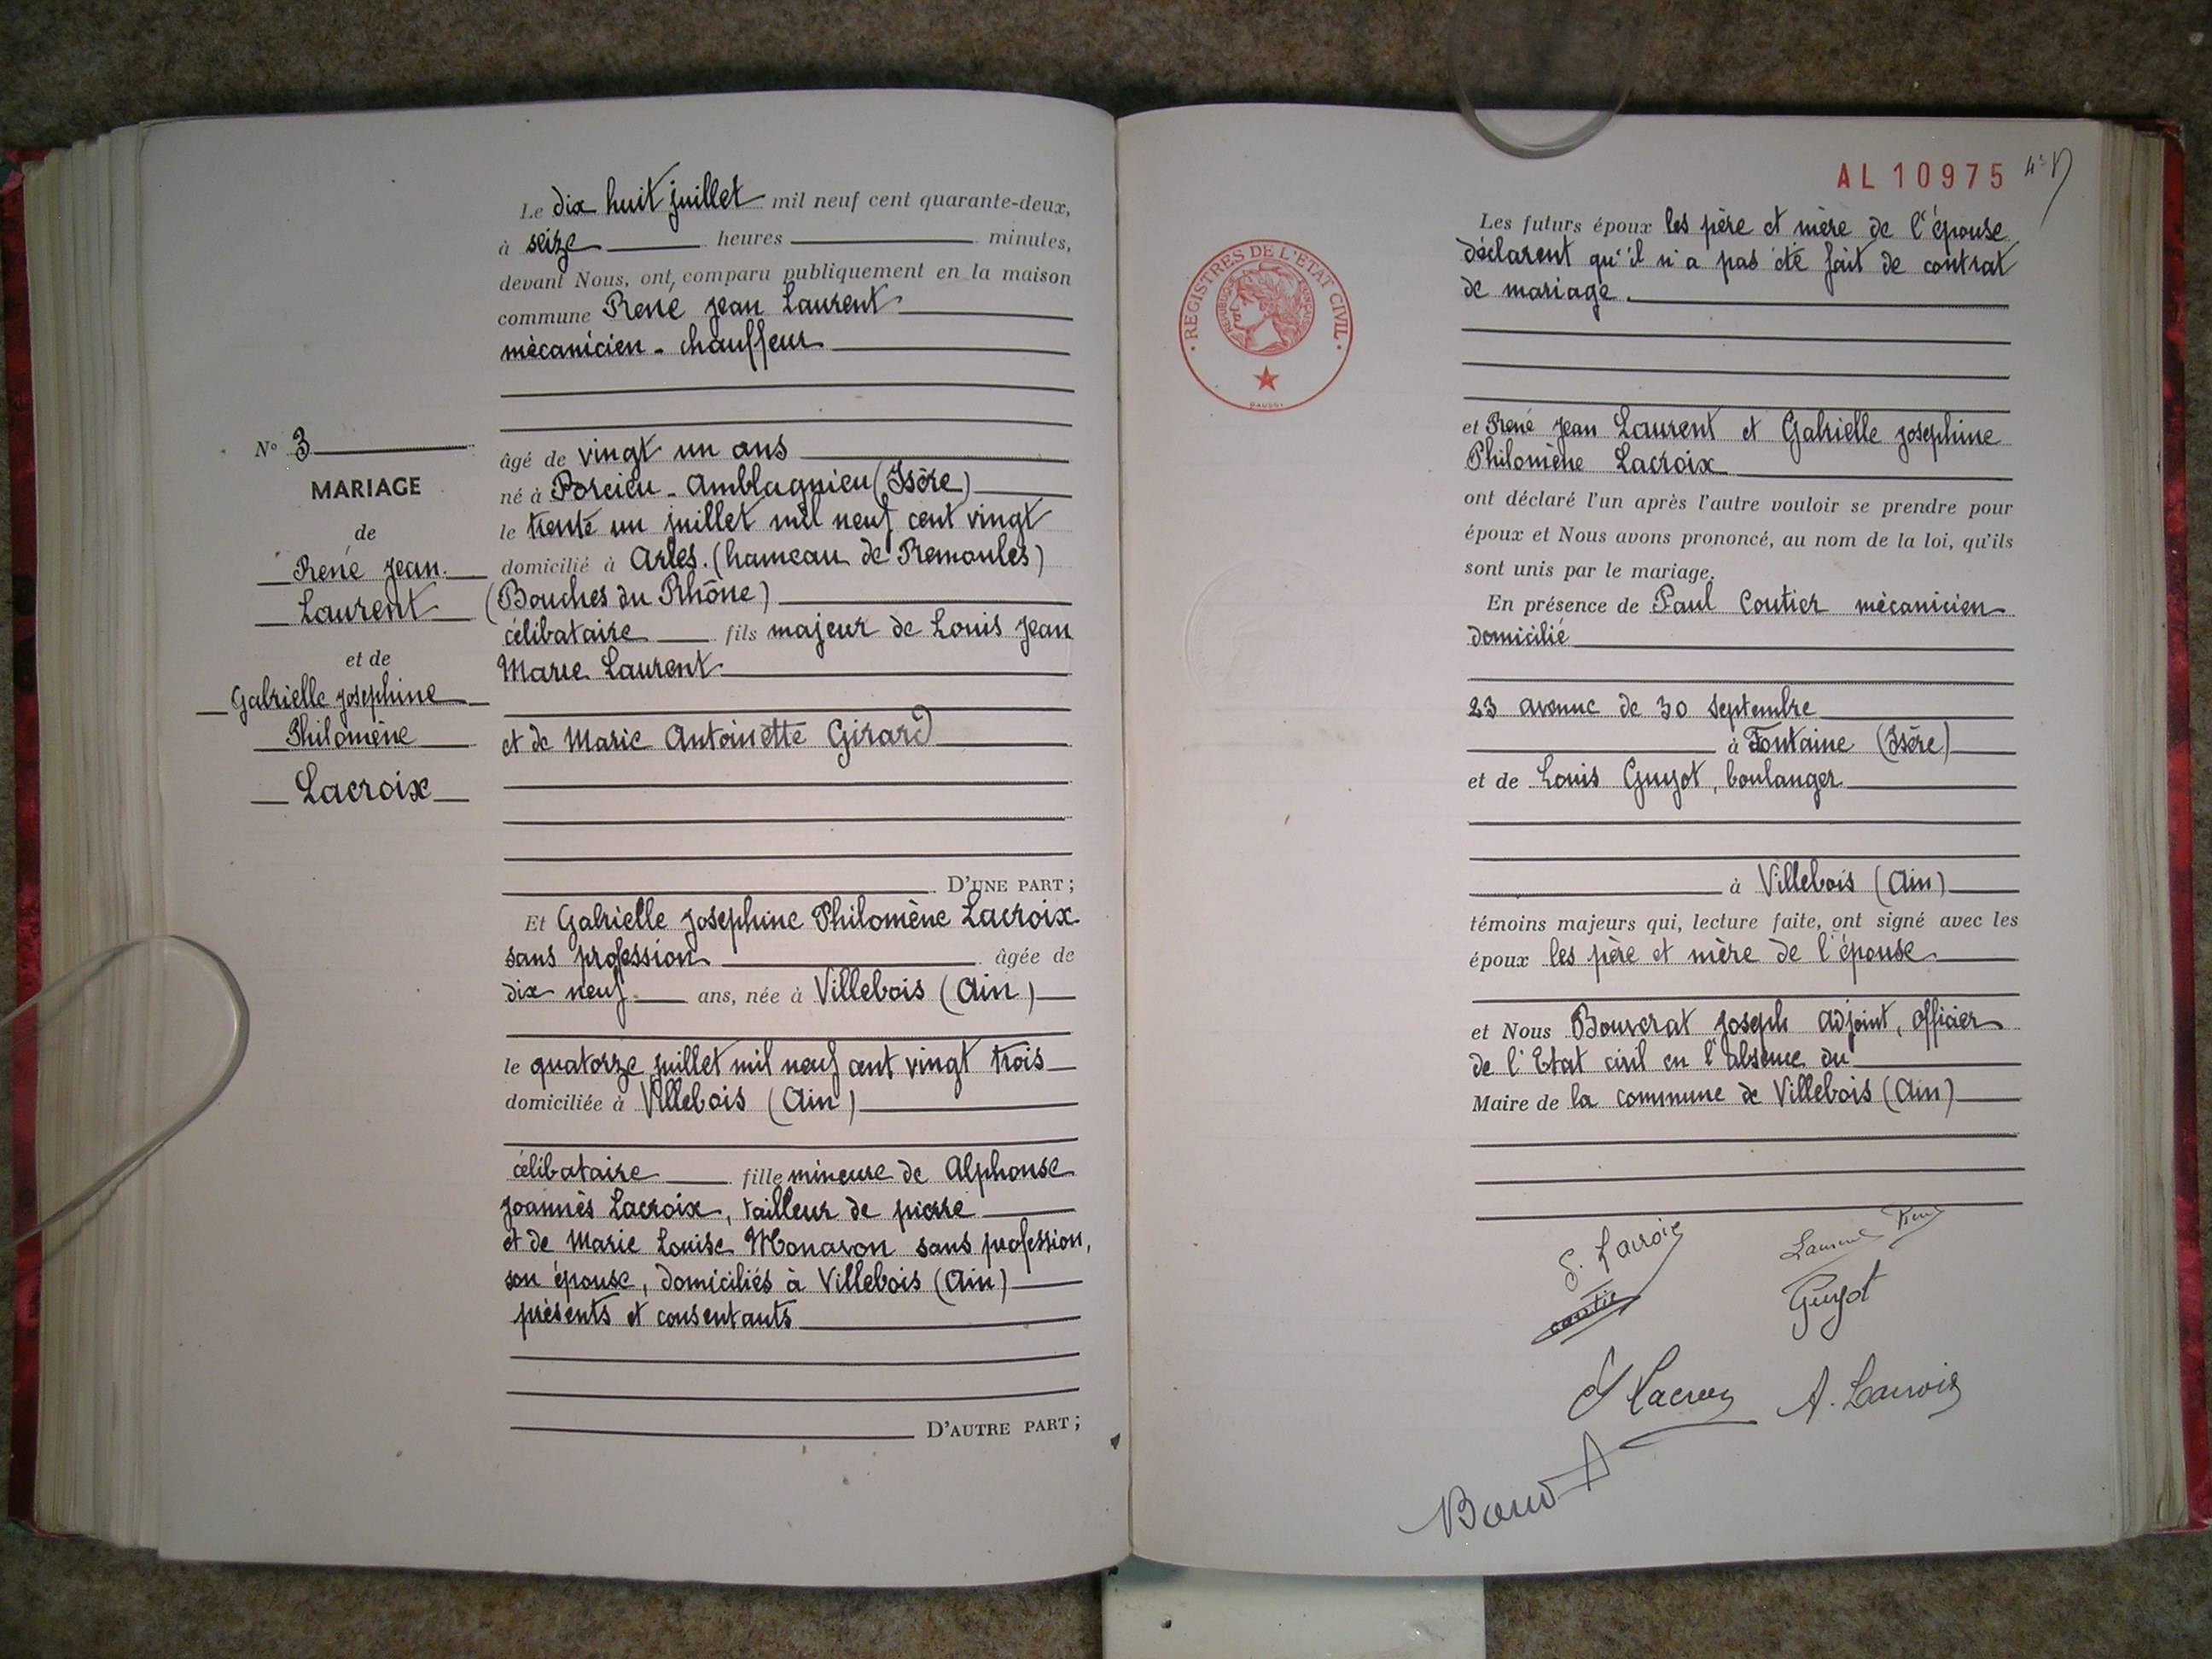 Le dix huit juillet mil neuf cent quarante-deux,
à seize heures minutes,
devant Nous, ont comparu publiquement en la maison
commune René Jean Laurent
mécanicien - chauffeur
N° 3
MARIAGE
de
René Jean
Laurent
et de
Gabrielle Josephine
Philomène
Lacroix
âgé de vingt un ans
né à Porcieu - Amblagnieu (Isère)
le trente un juillet mil neuf cent vingt
domicilié à Arles. (hameau de Remoules)
(Bouches du Rhône)
célibataire fils majeur de Louis Jean
Marie Laurent
et de Marie Antoinette Girard
D'UNE PART ;
Et Gabrielle Josephine Philomène Lacroix
sans profession âgée de
dix neuf ans, née à Villebois (Ain)
le quatorze juillet mil neuf cent vingt trois
domiciliée à Villebois (Ain)
célibataire fille mineure de Alphonse
Joannès Lacroix, tailleur de pierre
et de Marie Louise Monavon sans profession,
son épouse, domiciliés à Villebois (Ain)
présents et consentants
D'AUTRE PART ;
AL 10975
REGISTRES DE L'ETAT CIVIL
REPUBLIQUE FRANÇAISE
Les futurs époux les père et mère de l'épouse
déclarent qu'il n'a pas été fait de contrat
de mariage.
et René Jean Laurent et Gabrielle Josephine
Philomène Lacroix
ont déclaré l'un après l'autre vouloir se prendre pour
époux et Nous avons prononcé, au nom de la loi, qu'ils
sont unis par le mariage.
En présence de Paul Coutier mécanicien
domicilié
23 avenue de 30 Septembre
à Fontaine (Isère)
et de Louis Guyot, boulanger
à Villebois (Ain)
témoins majeurs qui, lecture faite, ont signé avec les
époux les père et mère de l'épouse
et Nous Bouvrat Joseph adjoint, officier
de l'Etat civil en l'absence du
Maire de la commune de Villebois (Ain)
G. Lacroix
Laurent René
Guyot
Lacroix
A. Lacroix